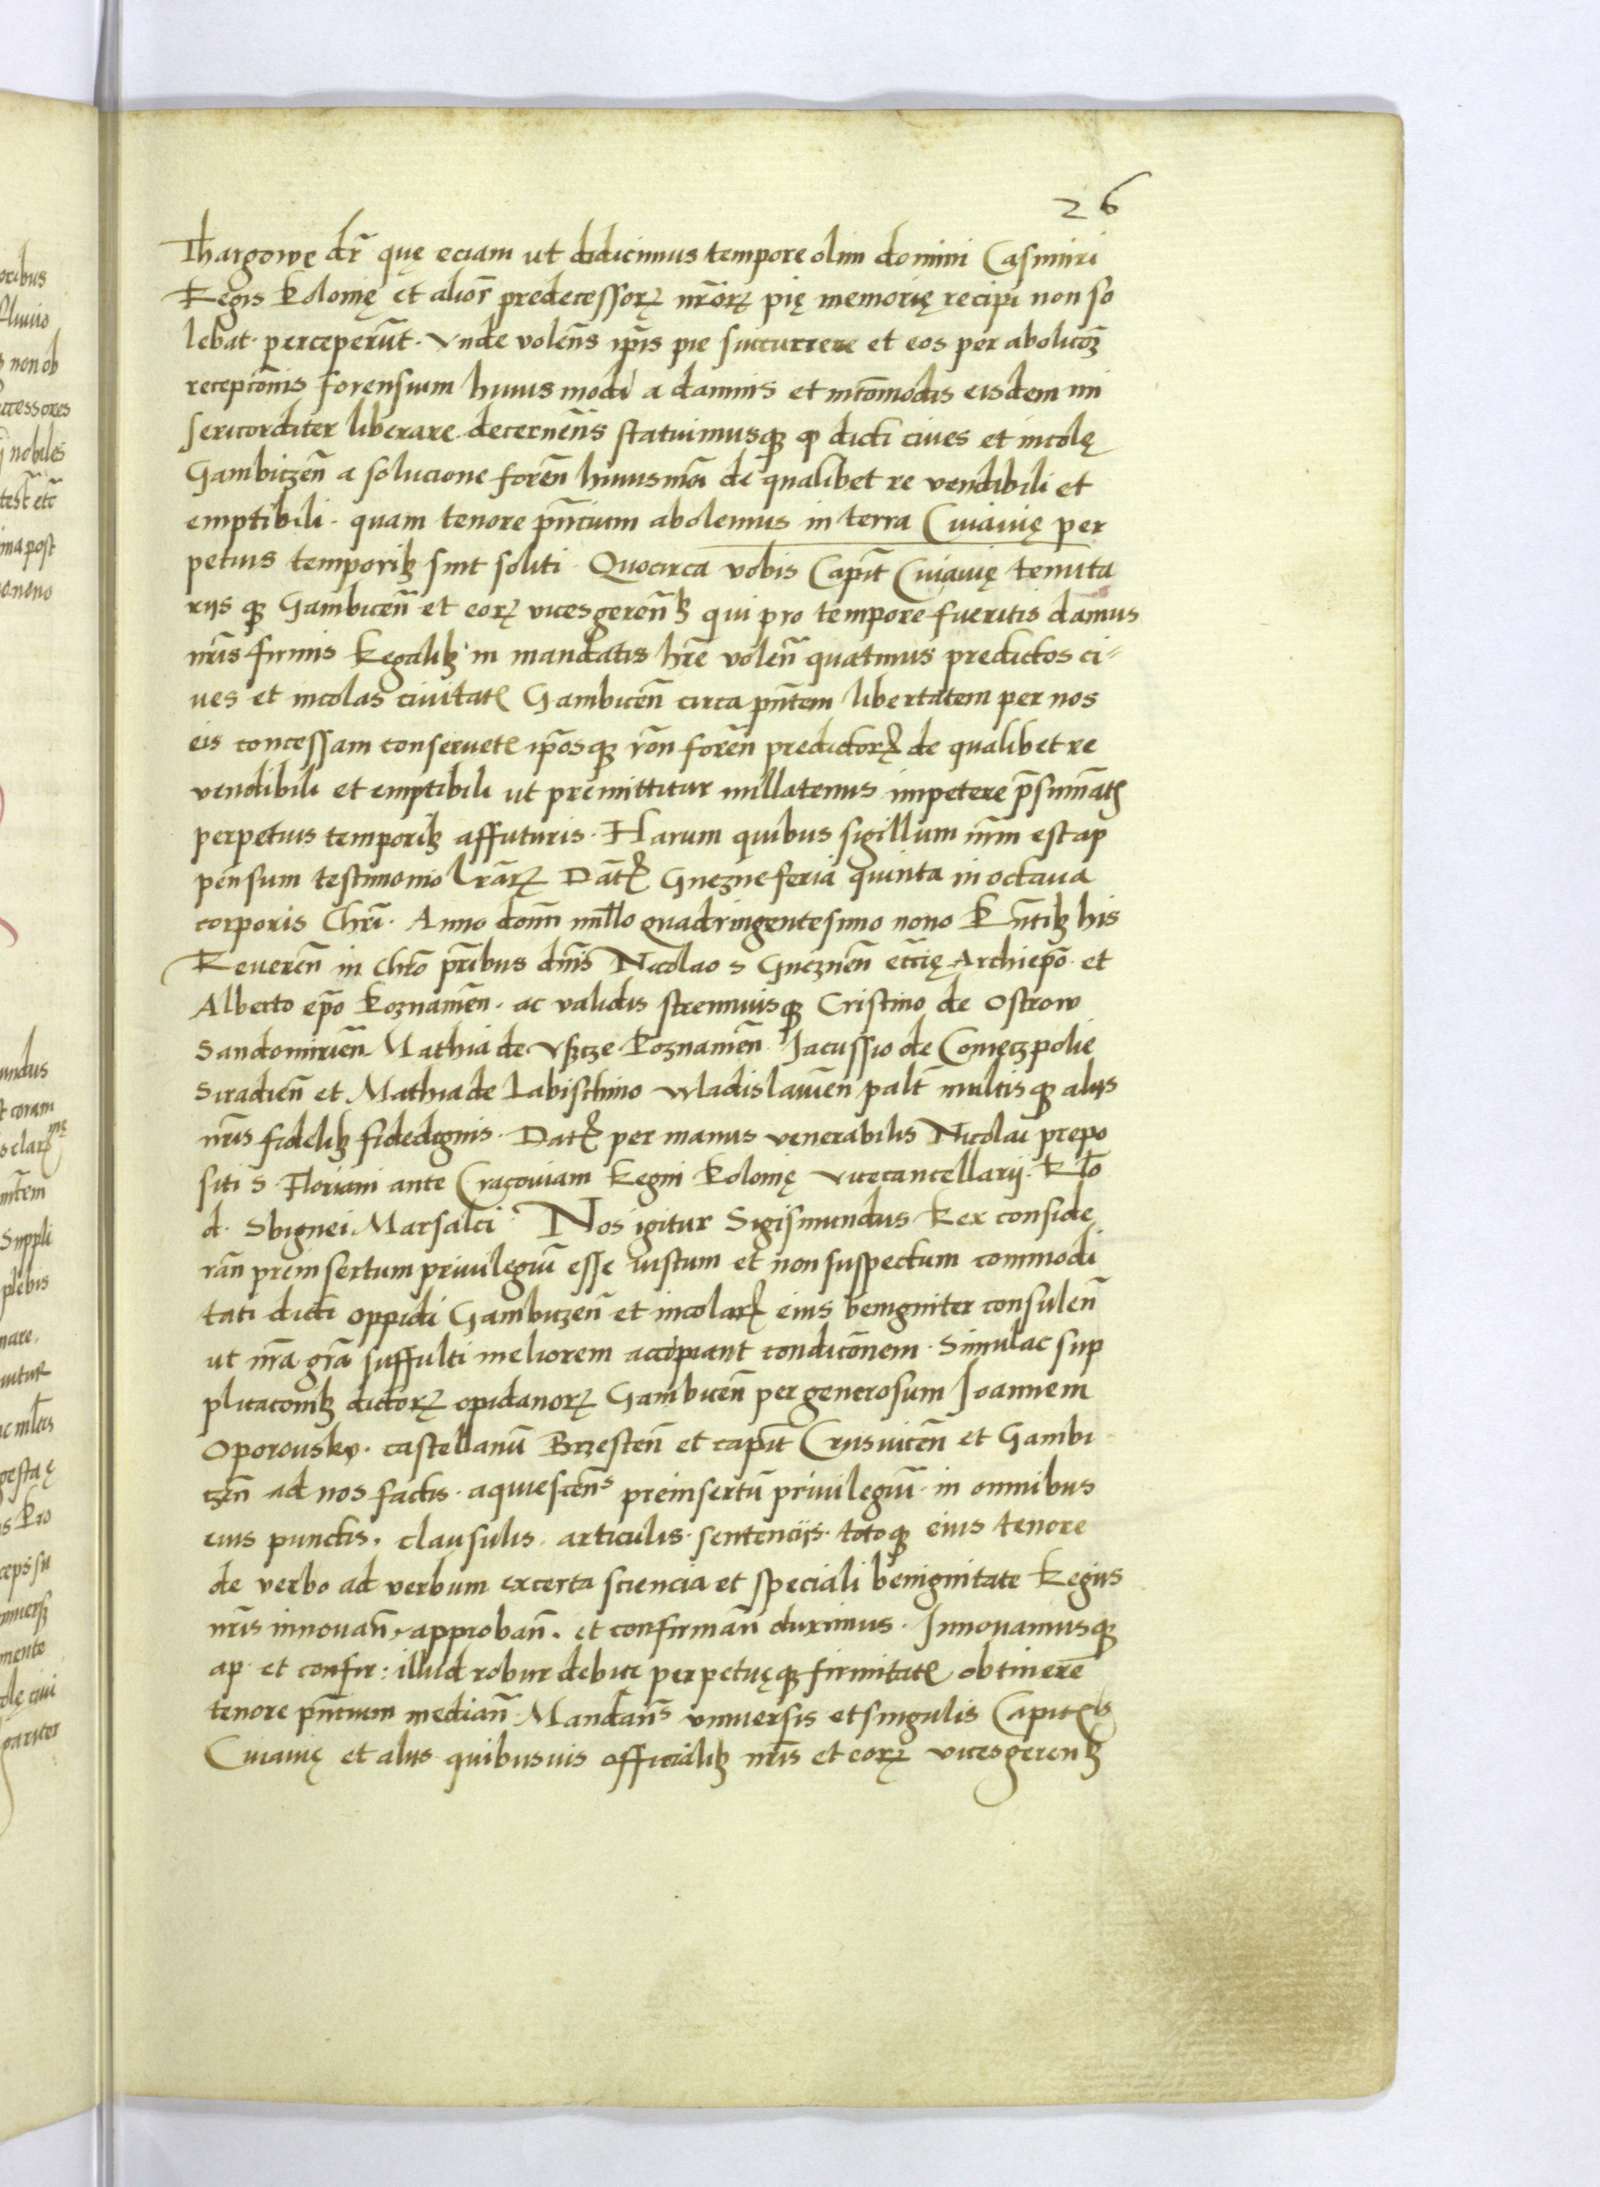 26
Thargowe dr̄ quę eciam ut didicimus tempore olim domini Casimiri
Regis Polonię et alior̄ predecessorꝝ nr̄orꝝ pię memorię recipi non so
lebat perceperūt. Vnde volen̄s ip̄is pie succurrere et eos per abolicōꝫ
recepciōnis forensium huius modi a damnis et incōmodis eisdem mi
sericorditer liberare decernen̄s statuimusqꝫ ꝙ dicti ciues et incolę
Gambiczen̄ a solucione foren̄ huiusmōi de qualibet re vendibili et
emptibili. quam tenore pn̄cium abolemus in terra Cuiauię per
petuis temporibꝫ sint soliti. Quocirca vobis Capit̄ Cuiauię tenuta
rijs qꝫ Gambicen̄ et eorꝝ vicesgeren̄bꝫ qui pro tempore fueritis damus
nr̄is firmis Regalibꝫ in mandatis hr̄e volen̄ quatinus predictos ci-
ues et incolas ciuitatꝭ Gambicen̄ circa pn̄tem libertatem per nos
eis concessam conseruetꝭ ip̄osqꝫ rōn foren̄ predictorꝝ de qualibet re
vendibili et emptibili ut premittitur nullatenus impetere p̄sumātꝭ
perpetuis temporibꝫ affuturis. Harum quibus sigillum nr̄m est ap
pensum testimonio lr̄arꝝ Dat̄ꝭ Gnezne feria quinta in octaua
corporis Chr̄i. Anno domī mill̄o quadringentesimo nono Pn̄tibꝫ his
Reueren̄ in chr̄o pr̄ibus dn̄is Nicolao S Gneznen̄ ecc̄ię Archiep̄o et
Alberto ep̄o Poznanien̄. ac validis strennuisqꝫ Cristino de Ostrow
Sandomirien̄ Mathia de Vscze Poznanien̄ Jacussio de Conieczpolie
Siradien̄ et Mathia de Labischino Wladislauien̄ palt̄ multisqꝫ alijs
nr̄is fidelibꝫ fidedignis. Datꝭ per manus venerabilis Nicolai prepo
siti S. Floriani ante Cracouiam Regni Polonię Vicecancellarij. Rl̄o
d. Sbignei Marsalci. Nos igitur Sigismundus Rex conside
ran̄ preinsertum priuilegiū esse iustum et non suspectum commodi
tati dicti oppidi Gambiczen̄ et incolarꝝ eius benigniter consulen̄
ut nr̄a gr̄a suffulti meliorem accipiant condicōnem. Simulac sup
plicacionibꝫ dictorꝝ opidanorꝝ Gambicen̄ per generosum Joannem
Oporousky. castellanū Brzesten̄ et capit̄ Crusuicen̄ et Gambi
czen̄ ad nos factis. aquiescen̄s preinsertū priuilegiū. in omnibus
eius punctis. clausulis. articulis. sentencijs. totoqꝫ eius tenore
de verbo ad verbum ex certa sciencia et speciali benignitate Regijs
nr̄is innouan̄. approban̄. et confirman̄ duximus. Innouamusqꝫ
ap. et confir: illud robur debite perpetuęqꝫ firmitatꝭ obtinere
tenore pn̄cium median̄. Mandan̄s vniuersis et singulis Capitꝭbꝫ
Cuiauię et alijs quibusuis officialibꝫ nr̄is et eorꝝ vicesgerenbꝫ